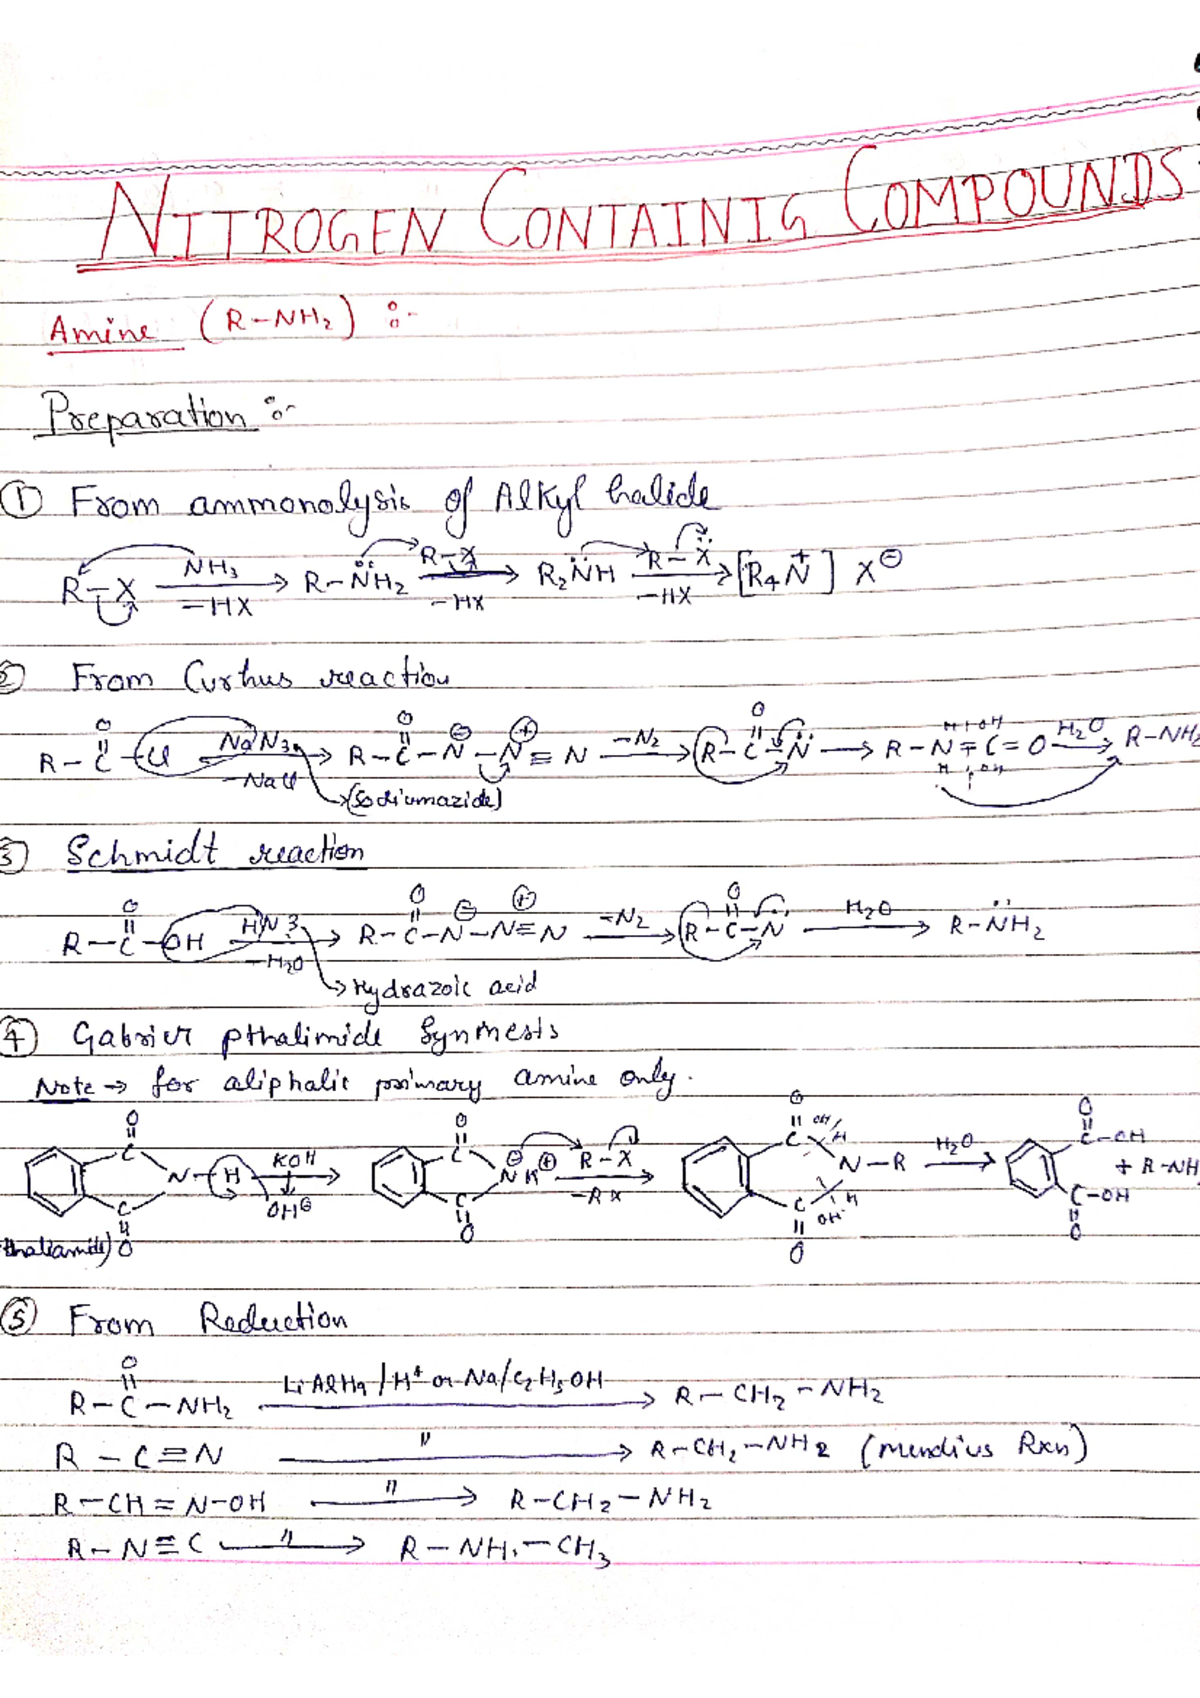 NITROGEN CONTAINIG COMPOUNDS
Amine (R-NH₂) :-
Preparation :-
① From ammonolysis of Alkyl halide
R-X NH₃ -HX → R-N̈H₂ R-X -HX → R₂N̈H R-Ẍ -HX → [R₄N⁺] X⊖
② From Curtius reaction
R-C(=O)-Cl NaN₃ -NaCl → R-C(=O)-N⊖-N⊕≡N -N₂ → R-C(=O)-N̈ → R-N=C=O H₂O → R-NH₂
H OH
H OH
→(Sodiumazide)
③ Schmidt reaction
R-C(=O)-OH HN₃ -H₂O → R-C(=O)-N⊖-N⊕≡N -N₂ → R-C(=O)-N̈ H₂O → R-N̈H₂
→ Hydrazoic acid
④ Gabriel pthalimide Synthesis
Note → for aliphatic primary amine only.
O C N-H C O KOH OH⊖ → O C N⊖ K⊕ C O R-X -RX → O C OH H N-R H C OH O H₂O → O C-OH C-OH O + R-NH
thaliamide)
⑤ From Reduction
R-C(=O)-NH₂ LiAlH₄/H⁺ or Na/C₂H₅OH → R-CH₂-NH₂
R-C≡N " → R-CH₂-NH₂ (mendius Rxn)
R-CH=N-OH " → R-CH₂-NH₂
R-N≡C " → R-NH.-CH₃